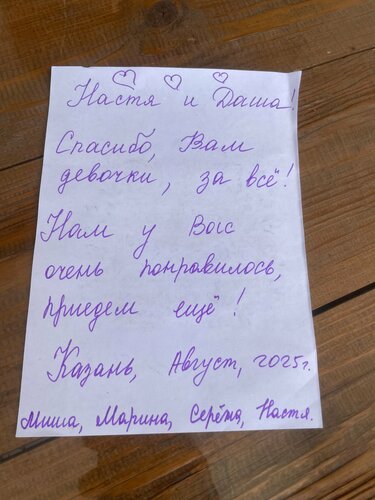 Настя и Даша!
Спасибо, Вам
девочки, за всё!
Нам у Вас
очень понравилось,
приедем ещё!
Казань, Август, 2025г.
Миша, Марина, Серёжа, Настя.